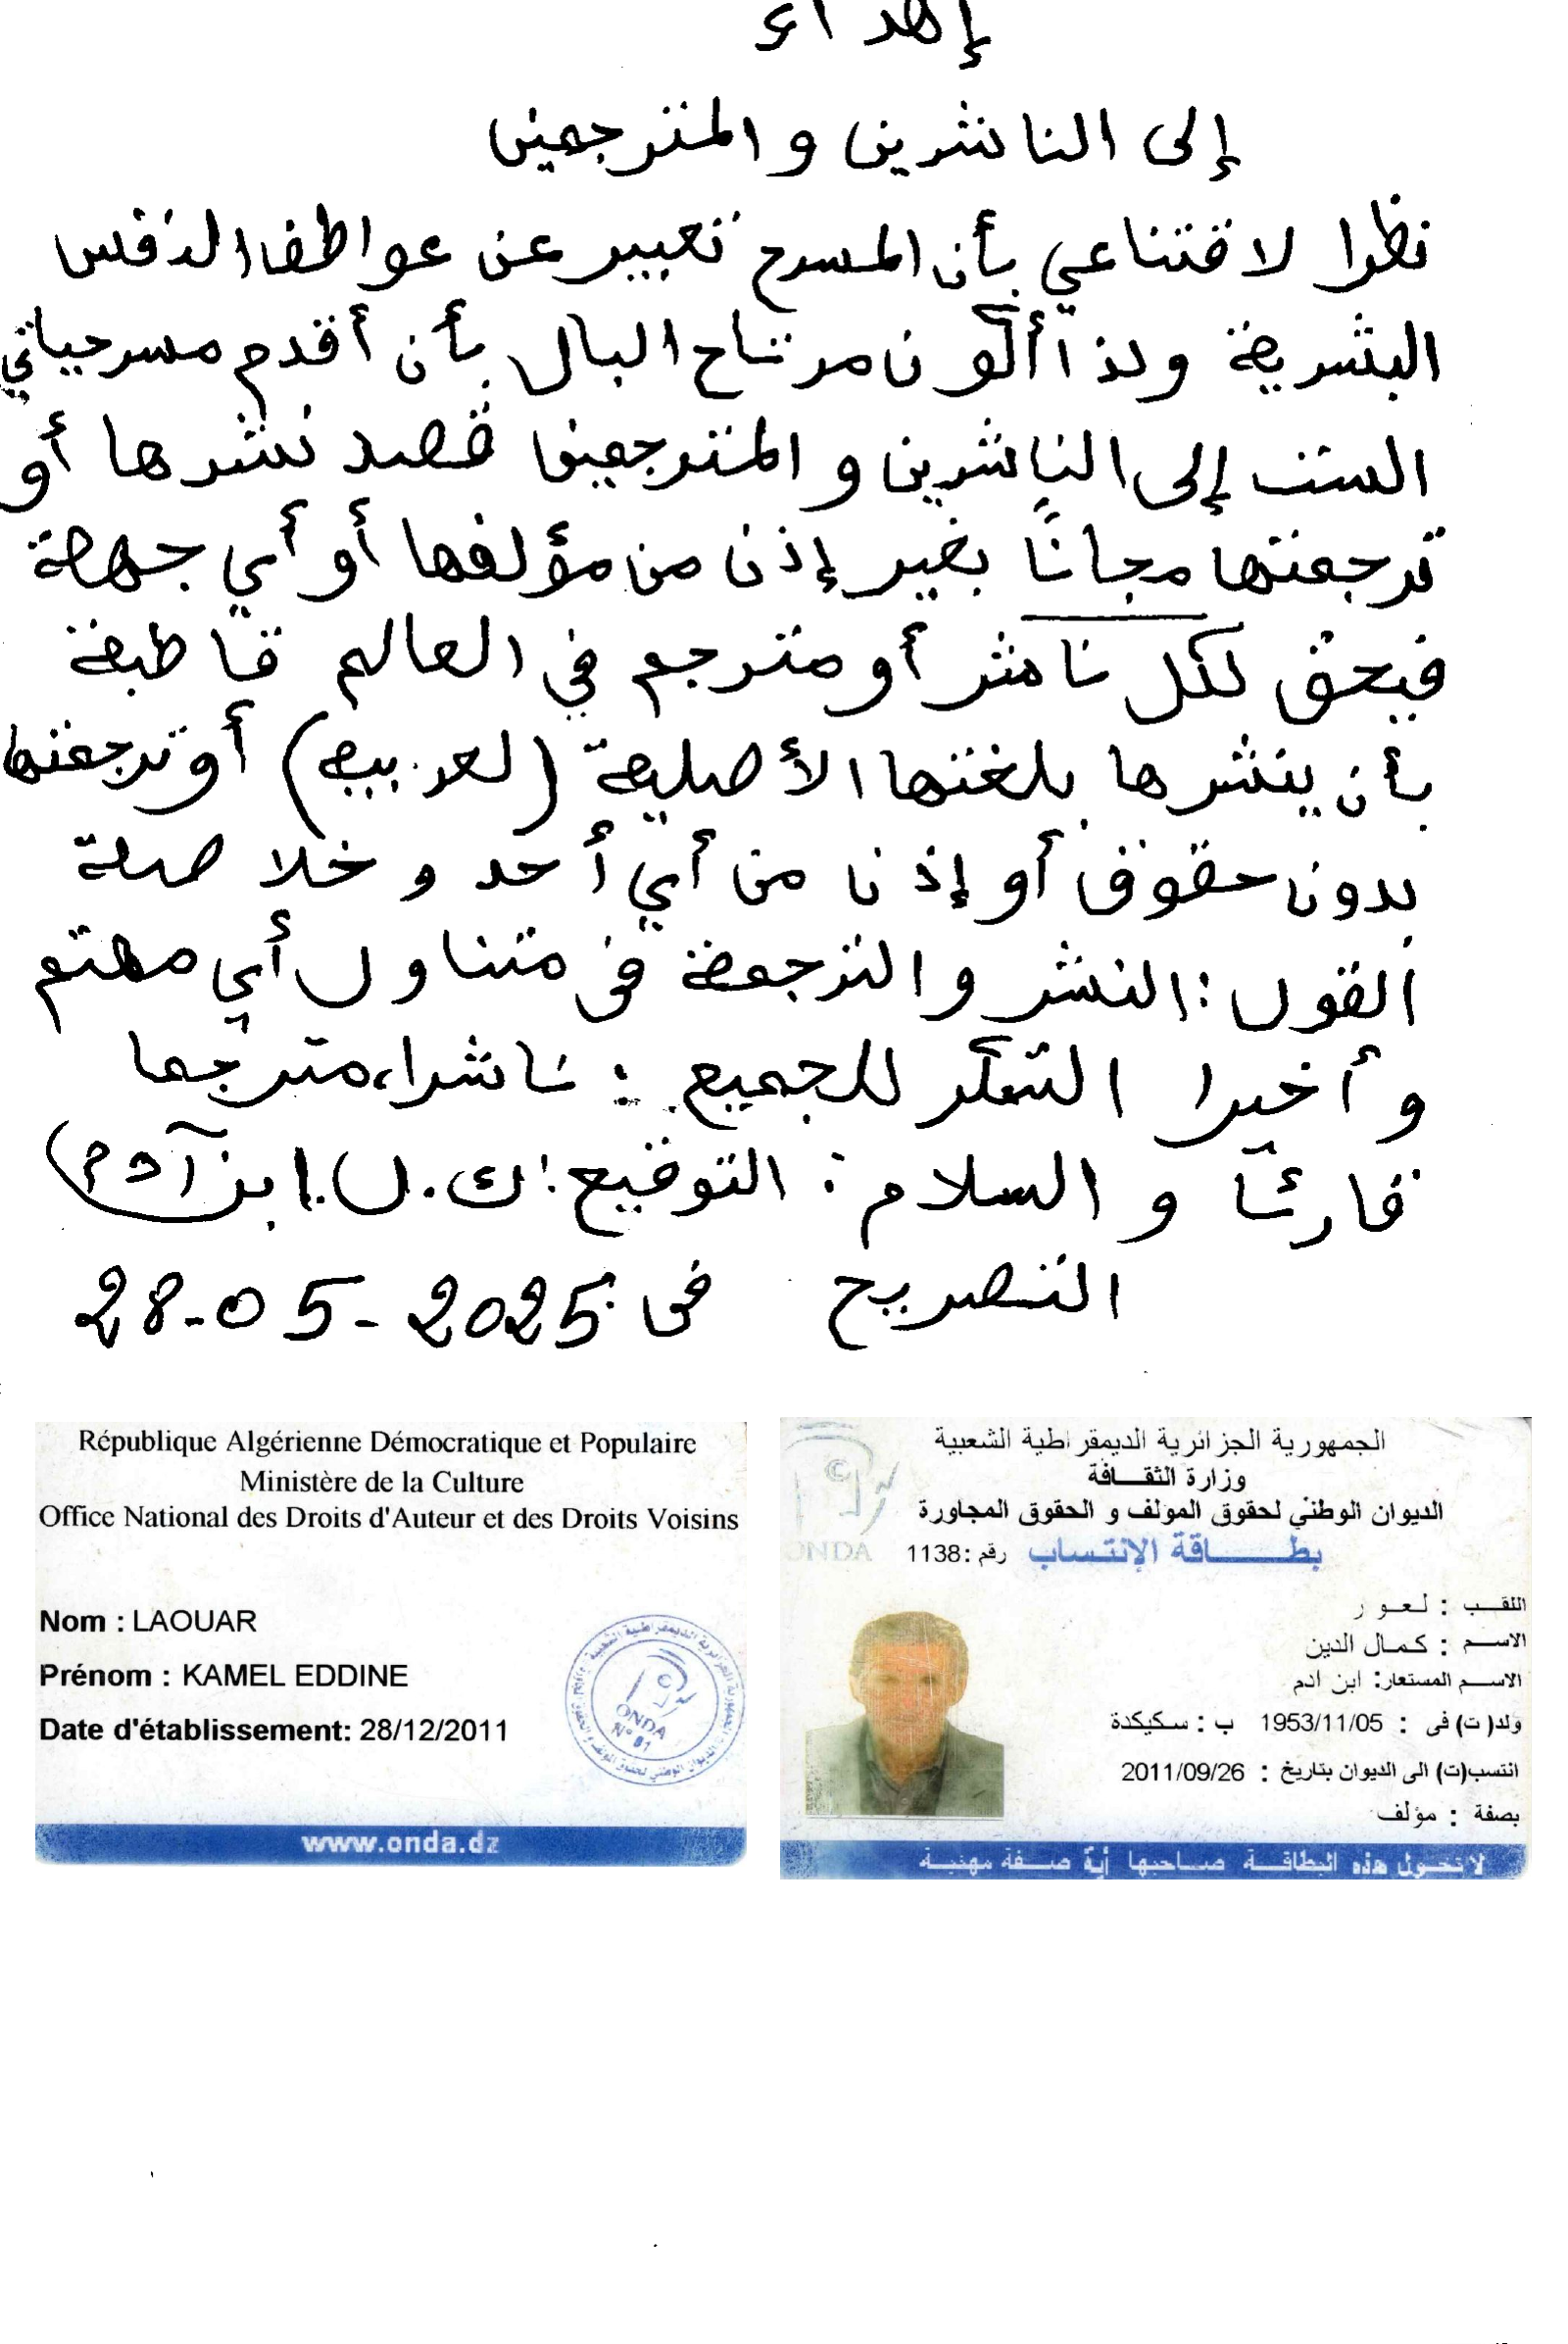 إهداء
إلى الناشرين و المترجمين
نظرا لاقتناعي بأن المسرح تعبير عن عواطف النفس
البشرية ولذا أكون مرتاح البال بأن أقدم مسرحياتي
الست إلى الناشرين و المترجمين قصد نشرها أو
ترجمتها مجانًا بغير إذن من مؤلفها أو أي جهة
فيحق لكل ناشر أو مترجم في العالم قاطبة
بأن ينشرها بلغتها الأصلية (العربية) أو ترجمتها
بدون حقوق أو إذنا من أي أحد و خلاصة
القول: النشر و الترجمة في متناول أي مهتم
و أخيرا الشكر للجميع: ناشرا، مترجما
قارئا و السلام: التوقيع: ك.ل. ابن آدم
التصريح في: 28-05-2025
République Algérienne Démocratique et Populaire
Ministère de la Culture
Office National des Droits d'Auteur et des Droits Voisins
Nom : LAOUAR
Prénom : KAMEL EDDINE
Date d'établissement: 28/12/2011
ONDA
N° 01
www.onda.dz
الجمهورية الجزائرية الديمقراطية الشعبية
وزارة الثقــافة
الديوان الوطني لحقوق المولف و الحقوق المجاورة
ONDA
بطـــــاقة الإنتـساب رقم :1138
اللقـب : لـعـو ر
الاسـم : كـمـال الدين
الاسـم المستعار: ابن ادم
ولد( ت) فى : 1953/11/05 ب : سكيكدة
انتسب(ت) الى الديوان بتاريخ : 2011/09/26
بصفة : مؤلف
لا تخـول هذه البطاقـة صـاحبها أية صـفة مهنيـة